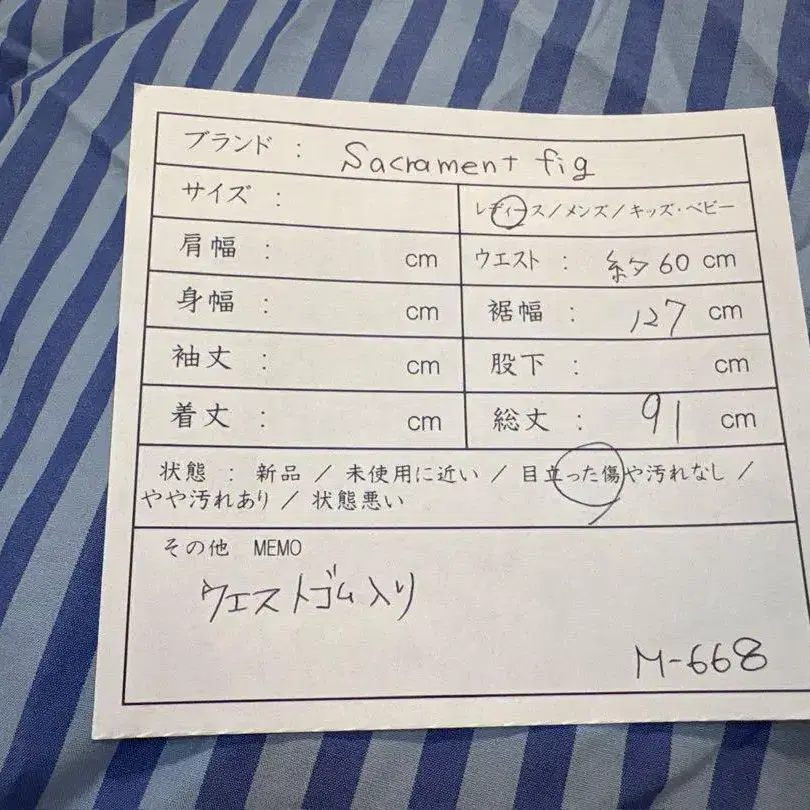 ブランド : Sacrament fig
サイズ :
レディース/メンズ/キッズ・ベビー
肩幅 : cm
ウエスト : 約60 cm
身幅 : cm
裾幅 : 127 cm
袖丈 : cm
股下 : cm
着丈 : cm
総丈 : 91 cm
状態 : 新品 / 未使用に近い / 目立った傷や汚れなし /
やや汚れあり / 状態悪い
その他 MEMO
ウエストゴム入り
M-668